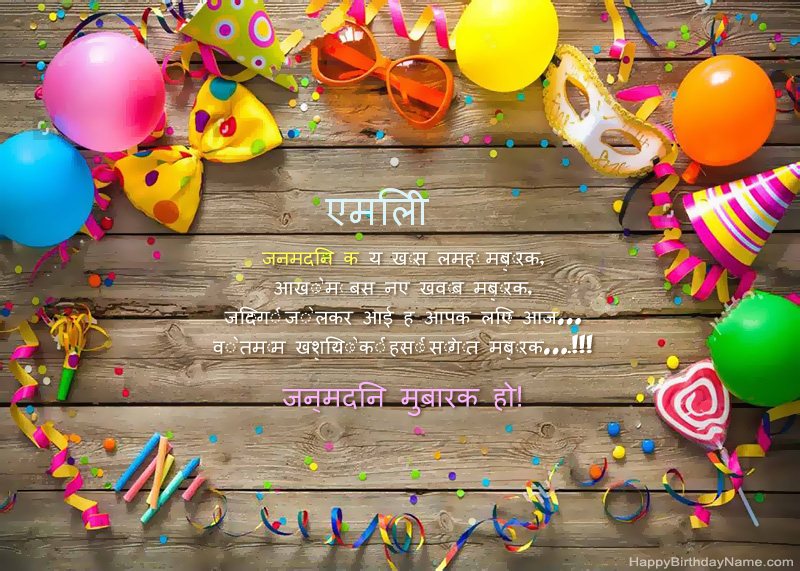 एमिली
जनमदिन क य ख़ास लमह मुबारक,
आंखों में बसे नए ख्वाब मुबारक,
जिंदगी जो लेकर आई है आपके लिए आज...
वो तमाम खुशियों की हंसी सौगात मुबारक...!!!
जन्मदिन मुबारक हो!
HappyBirthdayName.com